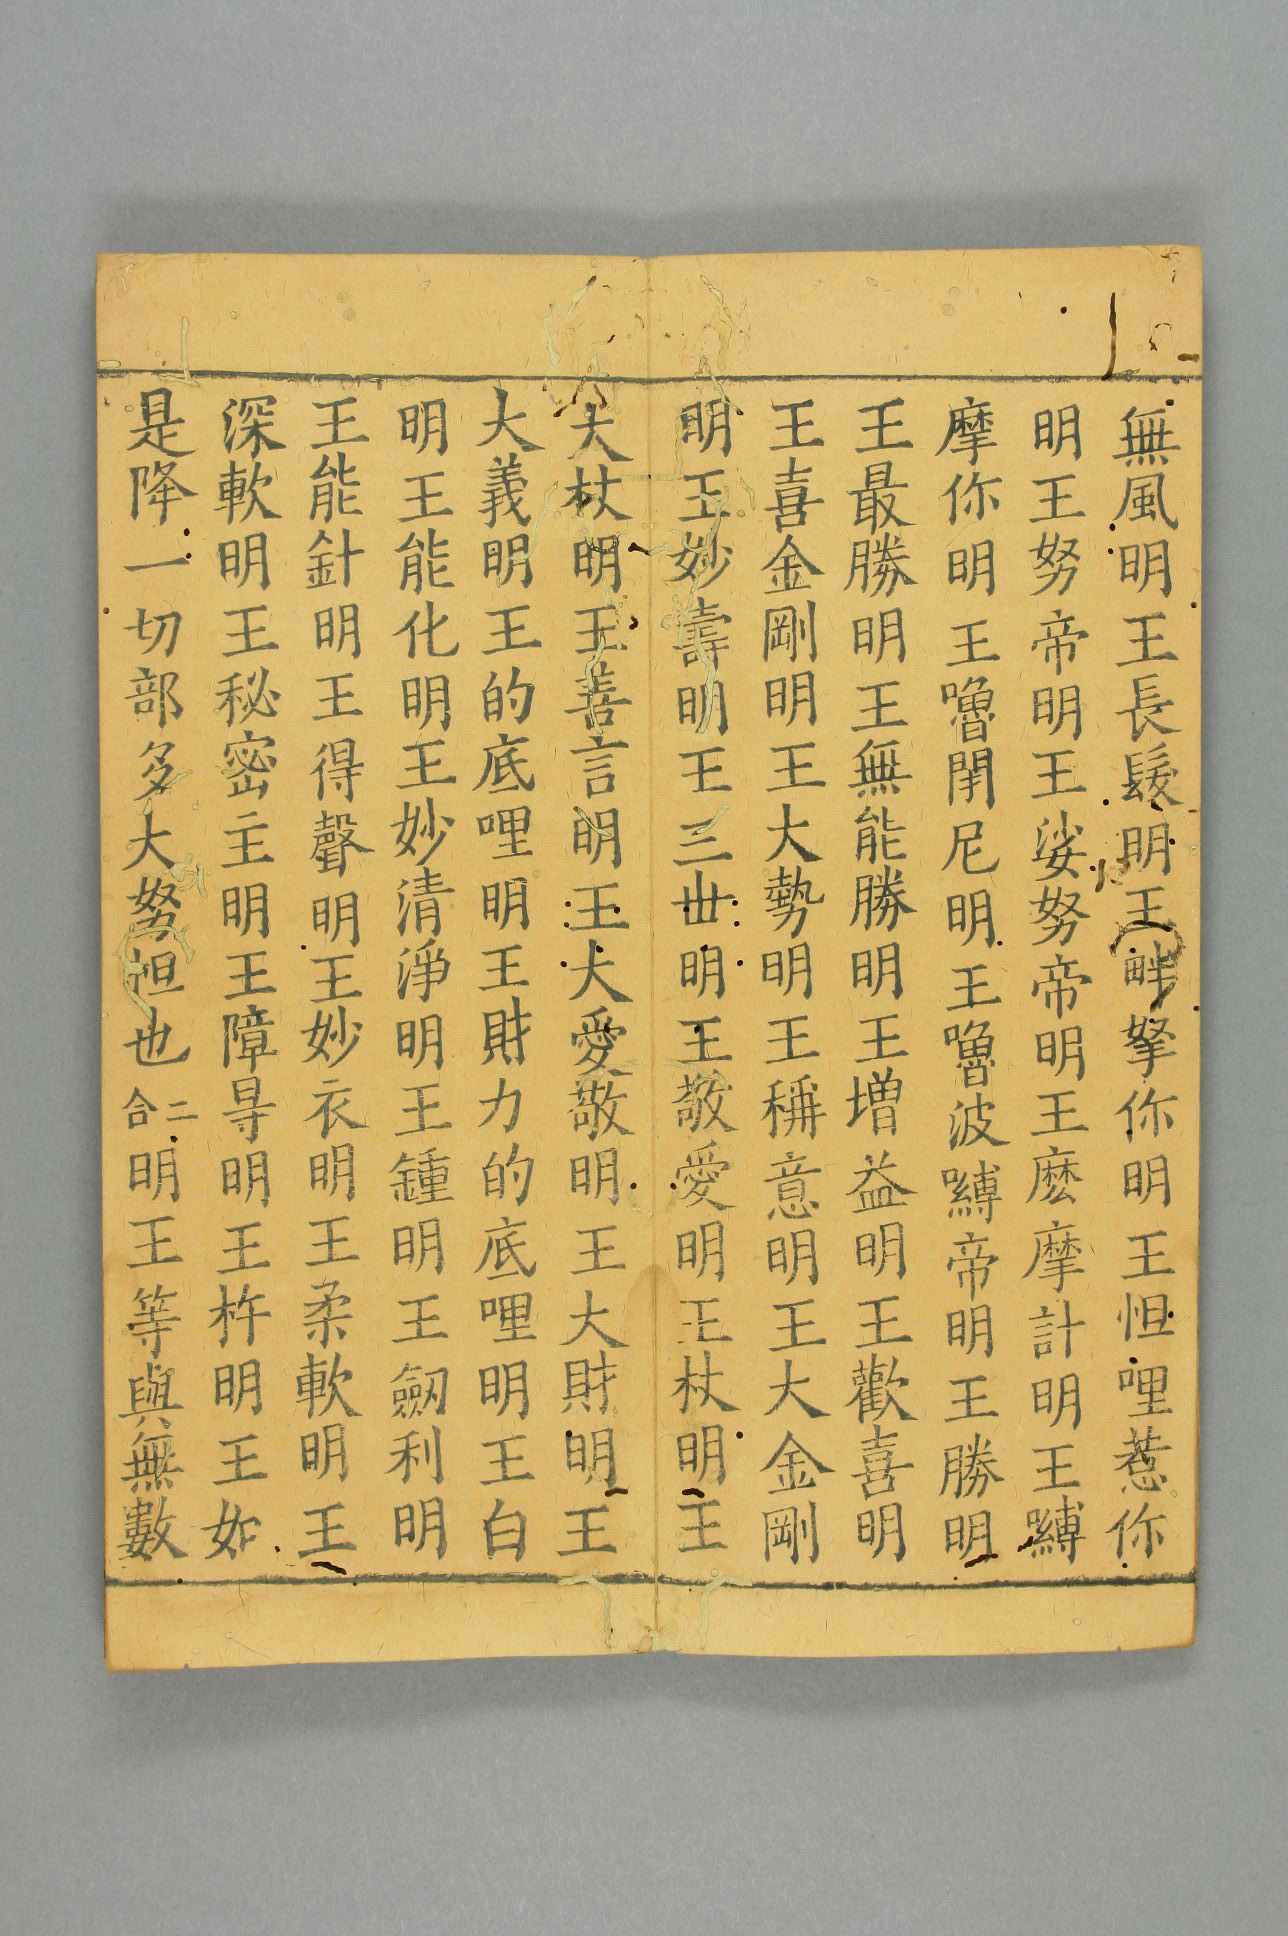 無風明王長髮明王畔拏你明王怛哩惹你
明王努帝明王娑努帝明王麽摩計明王嚩
摩你明王嚕閉尼明王嚕波嚩帝明王勝明
王最勝明王無能勝明王增益明王歡喜明
王喜金剛明王大勢明王稱意明王大金剛
明王妙壽明王三丗明王敬愛明王杖明王
大杖明王善言明王大愛敬明王大財明王
大義明王的底哩明王財力的底哩明王白
明王能化明王妙清淨明王鍾明王劔利明
王能針明王得聲明王妙衣明王柔軟明王
深軟明王秘密主明王障㝵明王杵明王如
是降一切部多大努怛也二合明王等與無數